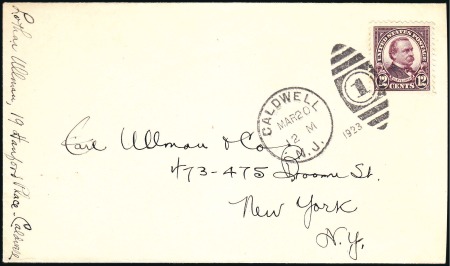 Lothar Ullman, 19 Hanford Place, Caldwell
UNITED STATES POSTAGE
12 CENTS 12
CALDWELL
MAR 20
12 M
N.J.
1923
1
Carl Ullman & Co
473-475 Broome St.
New York
N.Y.